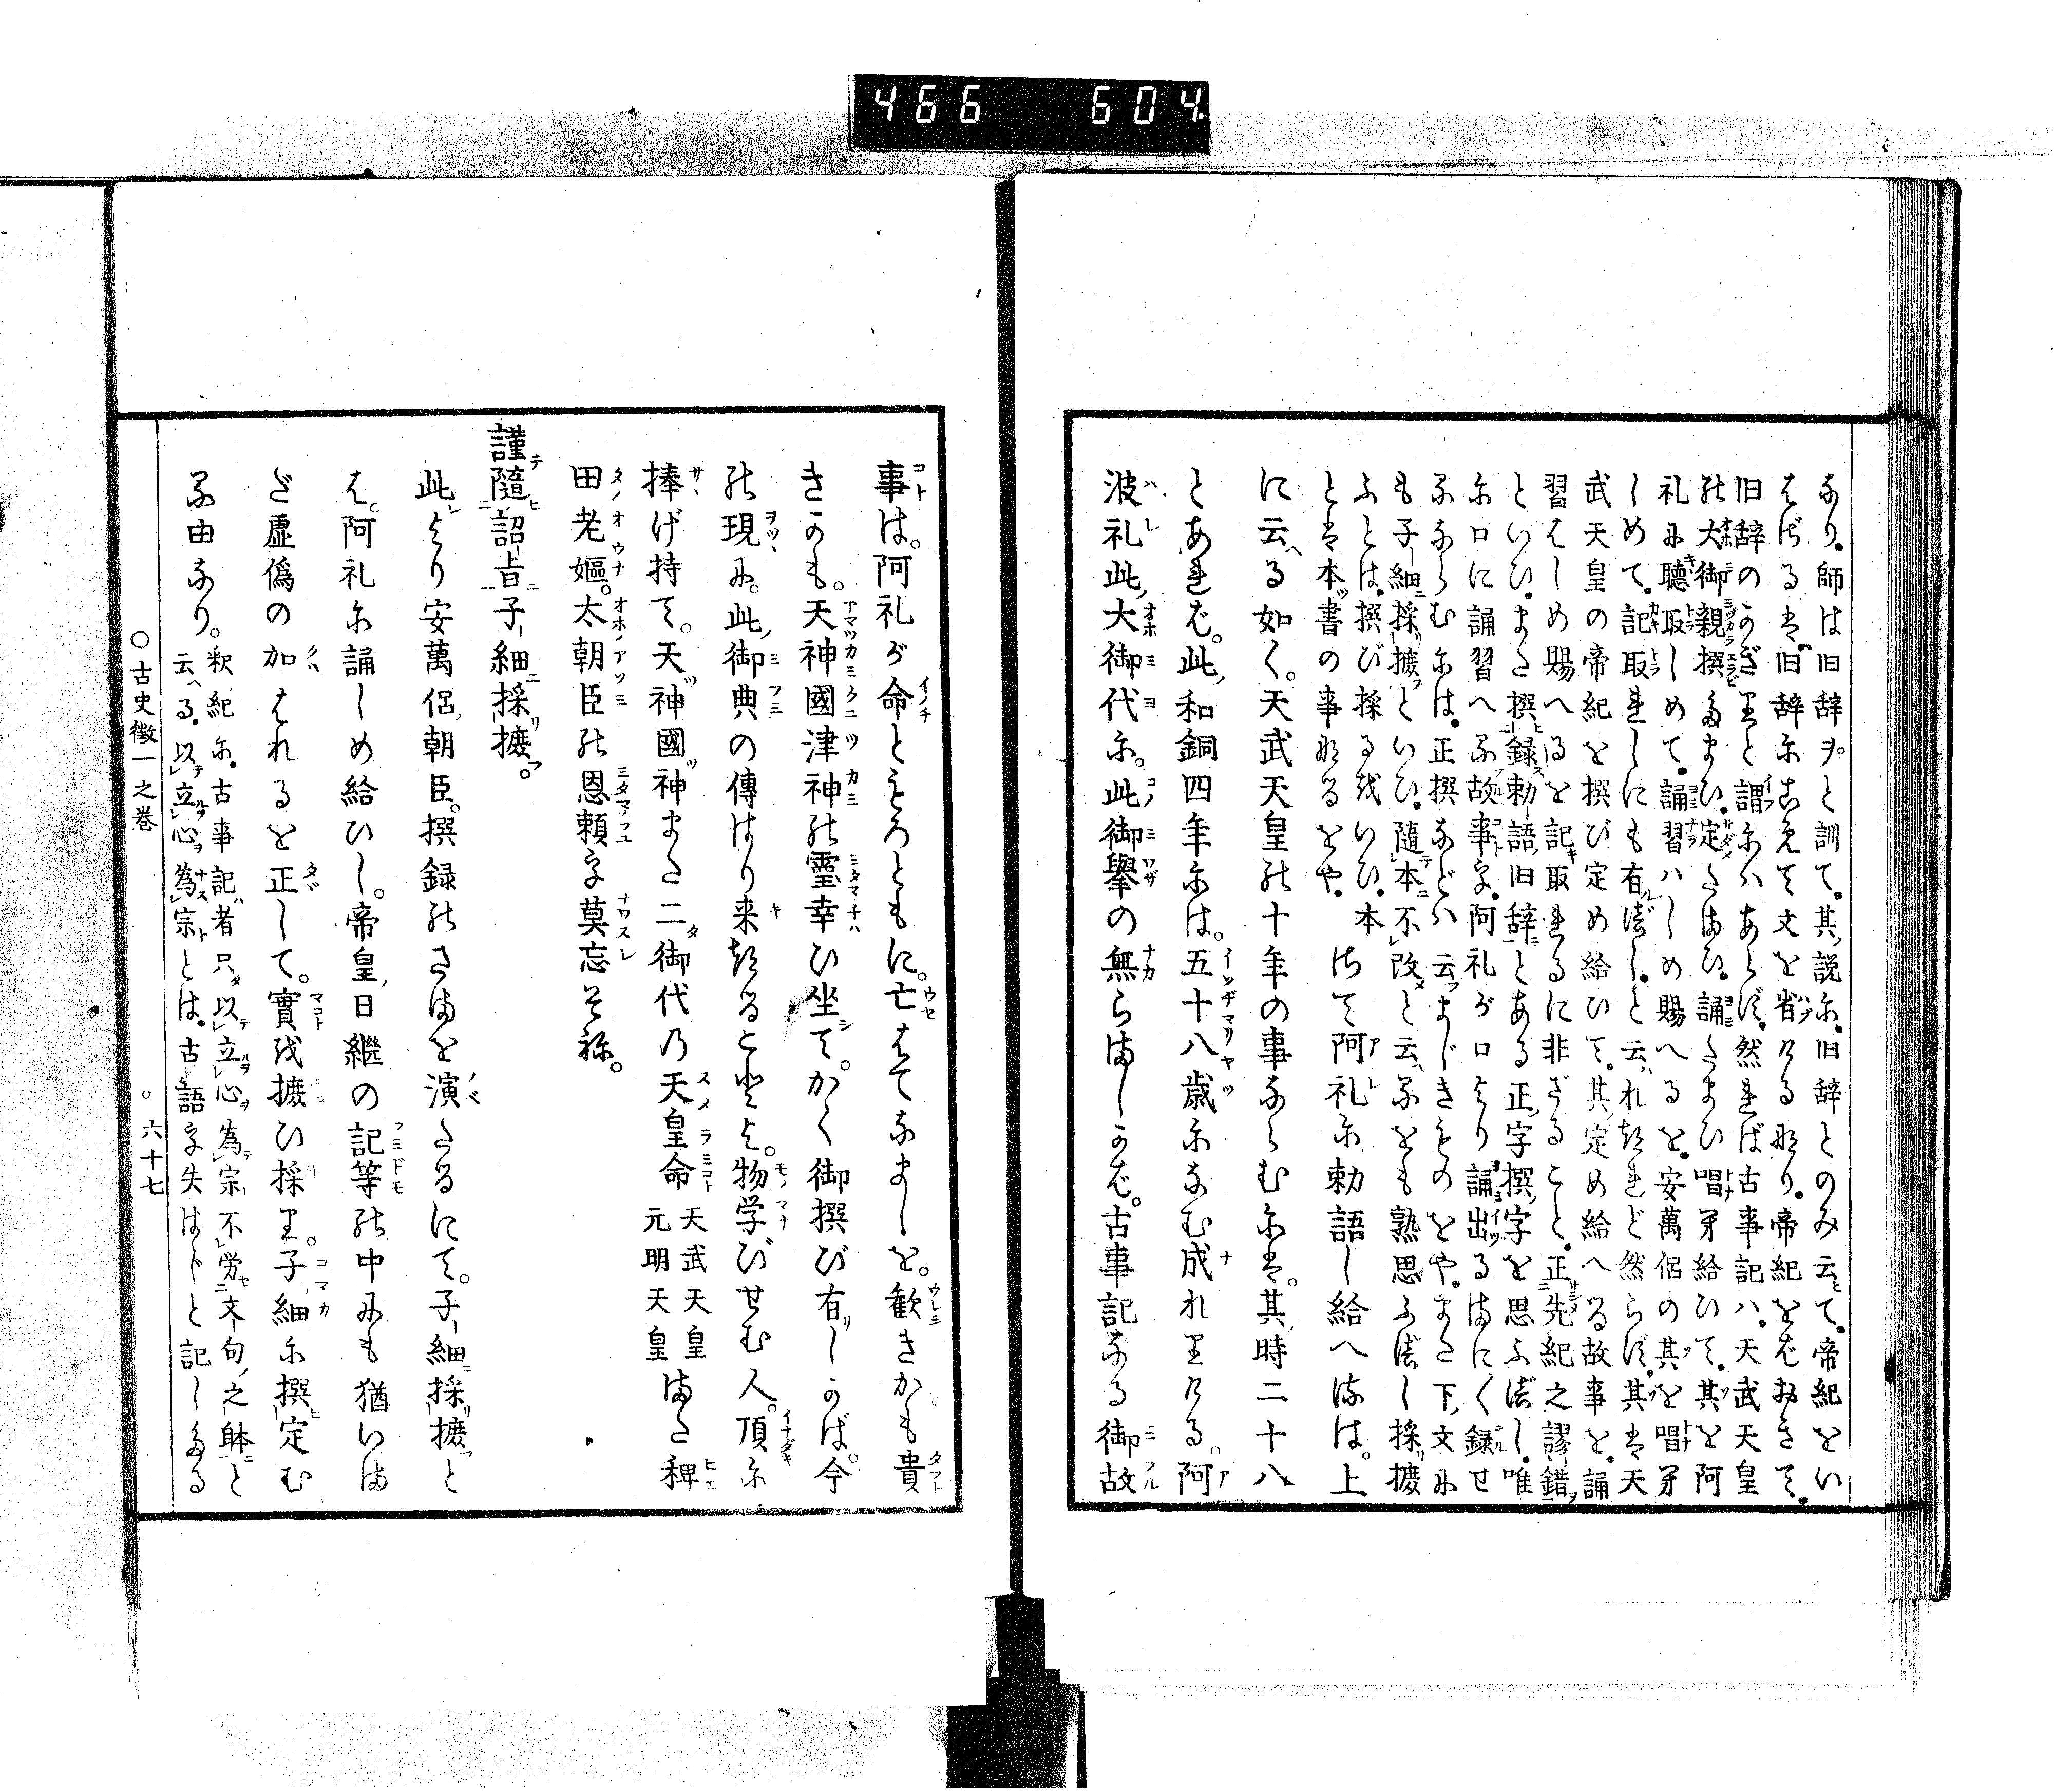 466 604.
なり。師は旧辞ヲと訓て。其説に。旧辞とのみ云て。帝紀をい
はざるは。旧辞にこめて文を省ける也り。帝紀をばおきて。
旧辞のかぎりと謂にハあらず。然れば古事記ハ。天武天皇
の大御親撰たまひ。定たまひ。誦たまひ唱牙給ひて。其を阿
礼に聴取しめて。誦習ハしめ賜へるを。安萬侶の其を唱牙
しめて。記取れしにも有べし。と云れたれど然らず。其は天
武天皇の帝紀を撰び定め給ひて。其定め給へる故事を。誦
習はしめ賜へるを記取れるに非ざること。正先紀之謬錯
といひ。また撰録勅語旧辞とある正字撰字を思ふべし。唯
に口に誦習へる故事を。阿礼が口より誦出るまにく録せ
るならむには。正撰などハ云まじきものをや。また下文に
も子細採摭といひ。随本不改と云へるをも熟思ふべし採摭
ふとは。撰び採るをいひ。本
とは本書の事なるをや。 さて阿礼に勅語し給へるは。上
に云へる如く。天武天皇の十年の事ならむには。其時二十八
とあれば。此和銅四年には。五十八歳になむ成れりける。阿
波礼此大御代に。此御擧の無らましかば。古事記なる御故
事は。阿礼が命ところともに。亡はてなましを。歓きかも貴
きかも。天神國津神の靈幸ひ坐て。かく御撰び有しかば。今
の現に。此御典の傳はり来たると也よ。物学びせむ人。頂に
捧げ持て。天神國神また二御代乃天皇命 天武天皇 元明天皇 また稗
田老嫗。太朝臣の恩頼字莫忘そね。
謹隨詔旨子細採摭。
此より安萬侶朝臣。撰録のさまを演たるにて。子細採摭と
は。阿礼に誦しめ給ひし。帝皇日継の記等の中にも猶いま
だ虚偽の加はれるを正して。實を摭ひ採り。子細に撰定む
る由なり。釈紀に。古事記者只以立心為宗不労文句之躰と
云へる。以立心為宗とは。古語字失はじと記したる
○古史徴一之巻 ○六十七